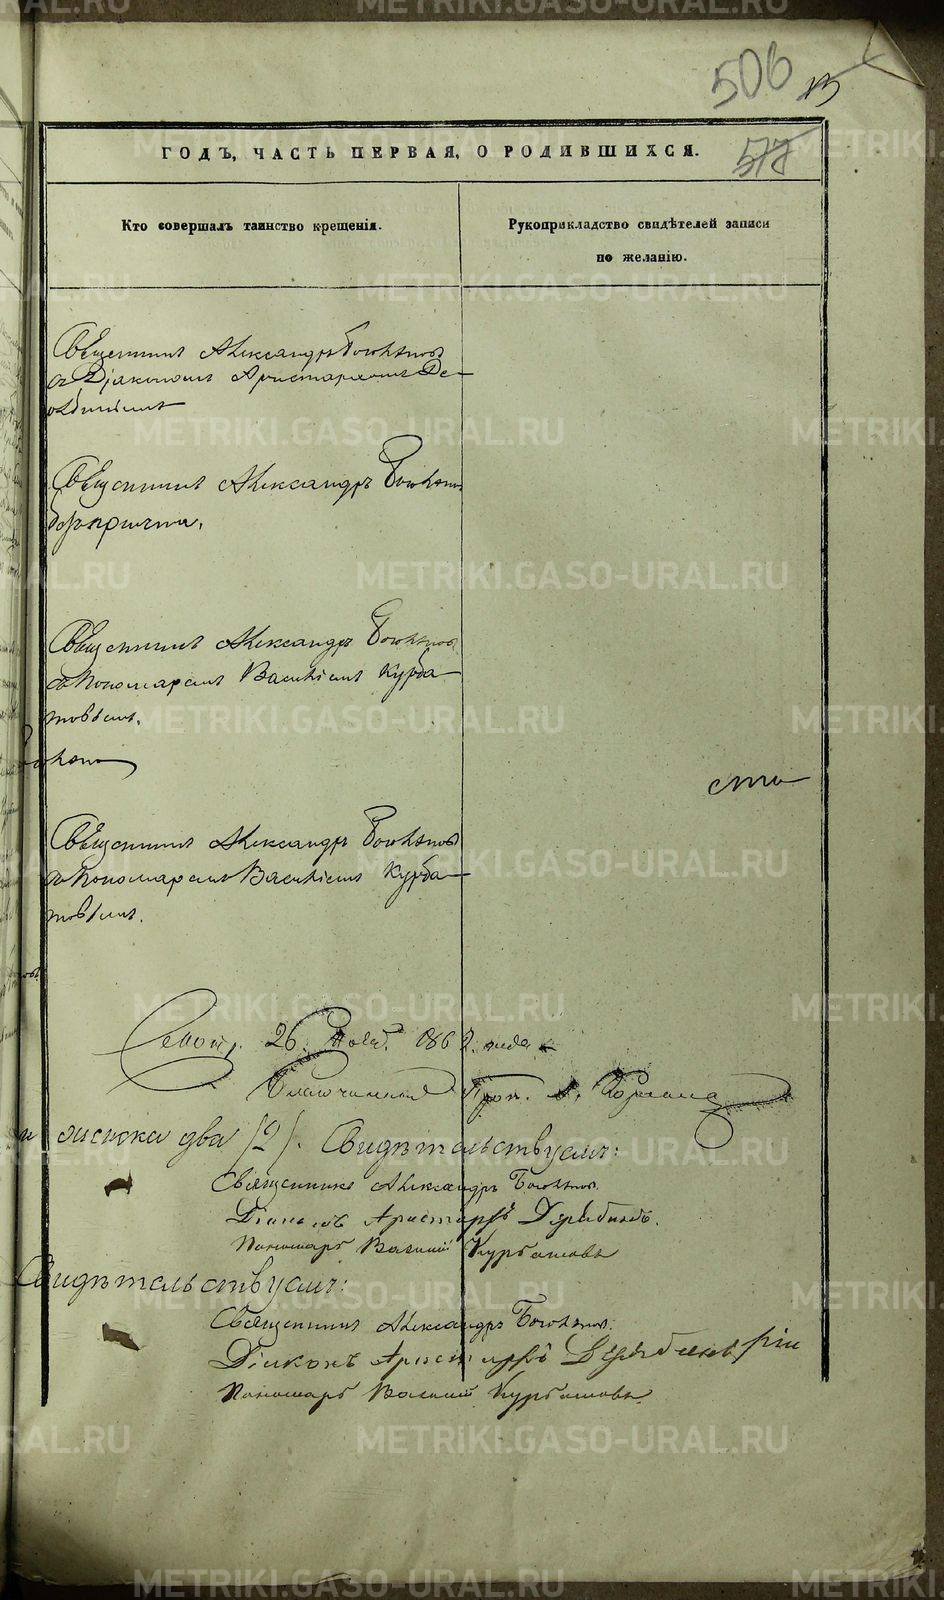 506
577
ГОДЪ, ЧАСТЬ ПЕРВАЯ, О РОДИВШИХСЯ.
Кто совершалъ таинство крещенія.
Рукоприкладство свидѣтелей записи
по желанію.
Священникъ Александръ
съ Діакономъ Аристархомъ Де-
Священникъ Александръ
безъ причта.
Священникъ Александръ
съ Пономаремъ Василіемъ Курба-
товымъ.
ста
Священникъ Александръ
съ Пономаремъ Василіемъ Курба-
товымъ.
26 186 года
Благочинный Прот.
два (2). Свидѣтельствуемъ:
Священникъ Александръ
Діаконъ Аристархъ Дерябинъ.
Пономарь Василій Курбатовъ
Свидѣтельствуемъ:
Священникъ Александръ
Діаконъ Аристархъ Дерябинъ
Пономарь Василій Курбатовъ.
METRIKI.GASO-URAL.RU